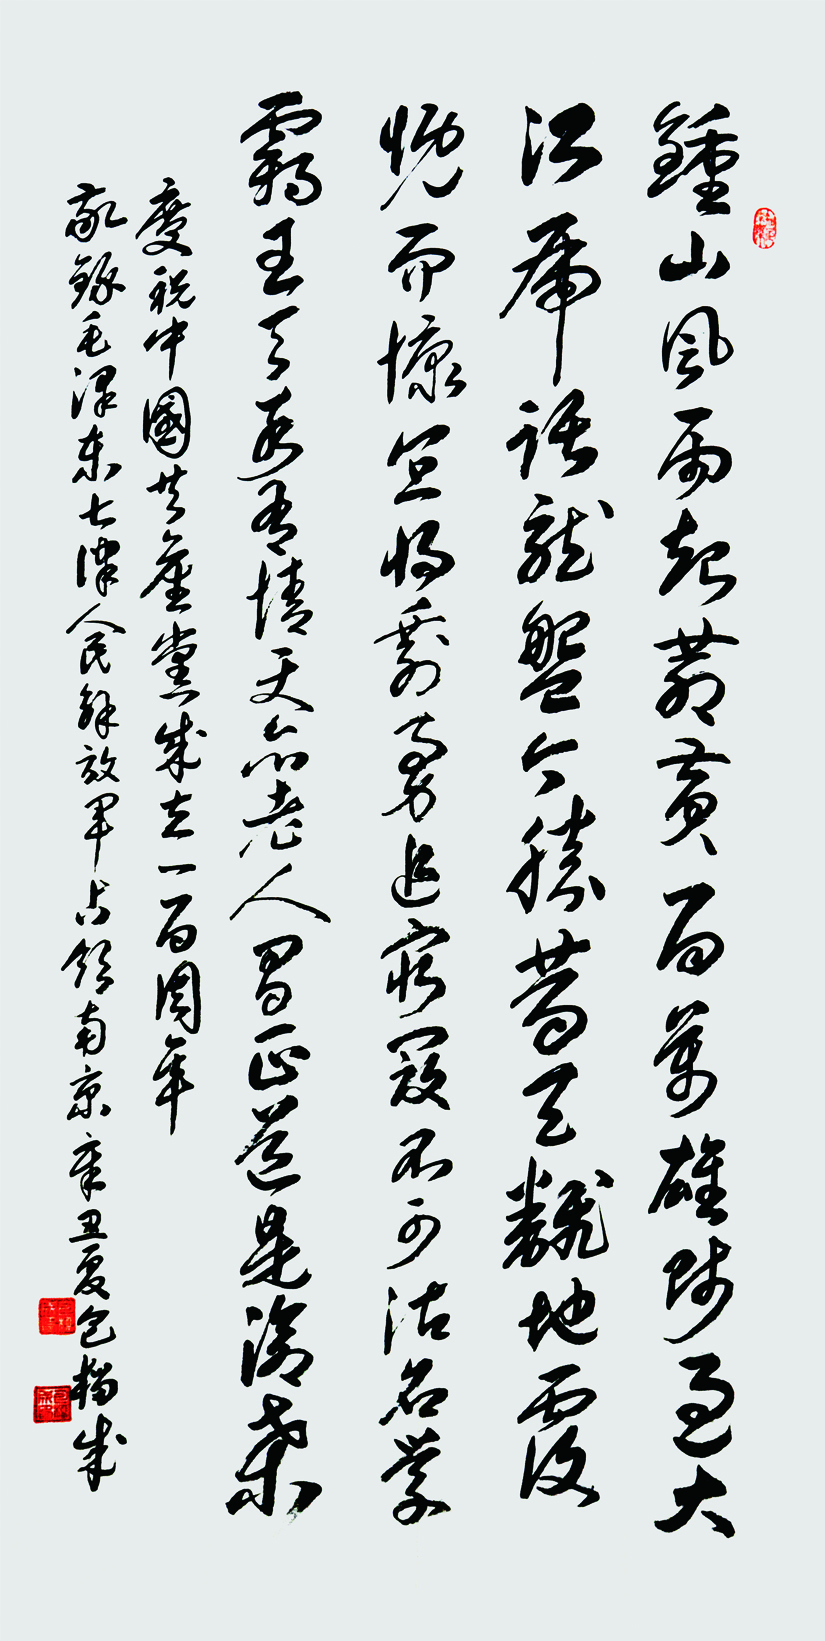 鍾山風雨起蒼黃百萬雄師過大
江虎踞龍盤今勝昔天翻地覆
慨而慷宜將剩勇追窮寇不可沽名學
霸王天若有情天亦老人間正道是滄桑
慶祝中國共產黨成立一百周年
敬錄毛澤東七律人民解放軍占領南京辛丑夏包成